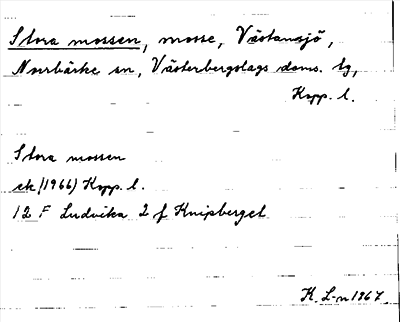 Stora mossen, mosse, Västansjö,
Norrbärke sn, Västerbergslags doms. tg,
Kopp. l.
Stora mossen
ek (1966) Kopp. l.
12 F Ludvika 2 f Knipberget
K. L-n 1967